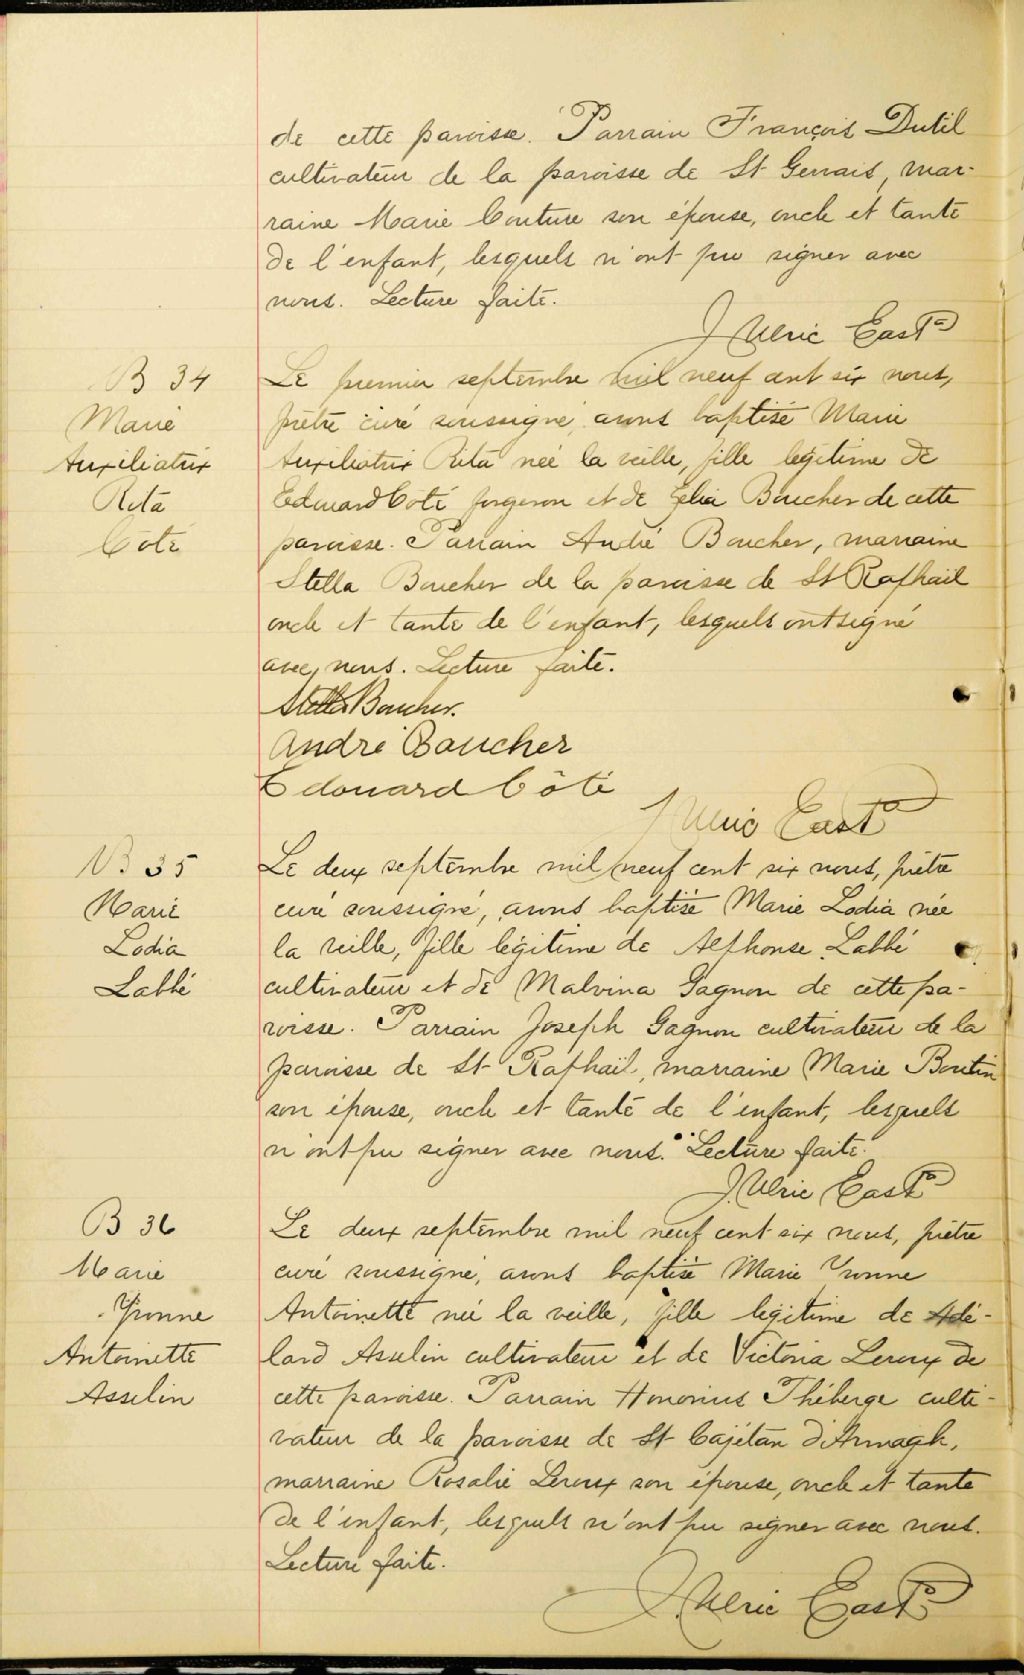 de cette paroisse. Parrain François Dutil
cultivateur de la paroisse de St Gervais, mar-
raine Marie Couture son épouse, oncle et tante
de l'enfant, lesquels n'ont pu signer avec
nous. Lecture faite.
J. Ulric East Ptre
B 34
Marie
Auxiliatrix
Rita
Côté
Le premier septembre mil neuf cent six nous,
prêtre curé soussigné, avons baptisé Marie
Auxiliatrix Rita née la veille, fille légitime de
Edouard Côté forgeron et de Zélia Boucher de cette
paroisse. Parrain André Boucher, marraine
Stella Boucher de la paroisse de St Raphaïl
oncle et tante de l'enfant, lesquels ont signé
avec nous. Lecture faite.
Stella Boucher.
André Boucher
Edouard Côté
J. Ulric East Ptre
B 35
Marie
Lodia
Labbé
Le deux septembre mil neuf cent six nous, prêtre
curé soussigné, avons baptisé Marie Lodia née
la veille, fille légitime de Alphonse Labbé
cultivateur et de Malvina Gagnon de cette pa-
roisse. Parrain Joseph Gagnon cultivateur de la
paroisse de St Raphaïl, marraine Marie Boutin
son épouse, oncle et tante de l'enfant, lesquels
n'ont pu signer avec nous. Lecture faite.
J. Ulric East Ptre
B 36
Marie
Yvonne
Antoinette
Asselin
Le deux septembre mil neuf cent six nous, prêtre
curé soussigné, avons baptisé Marie Yvonne
Antoinette née la veille, fille légitime de Adé-
lard Asselin cultivateur et de Victoria Leroux de
cette paroisse. Parrain Honorius Théberge culti-
vateur de la paroisse de St Cajétan d'Armagh,
marraine Rosalie Leroux son épouse, oncle et tante
de l'enfant, lesquels n'ont pu signer avec nous.
Lecture faite.
J. Ulric East Ptre